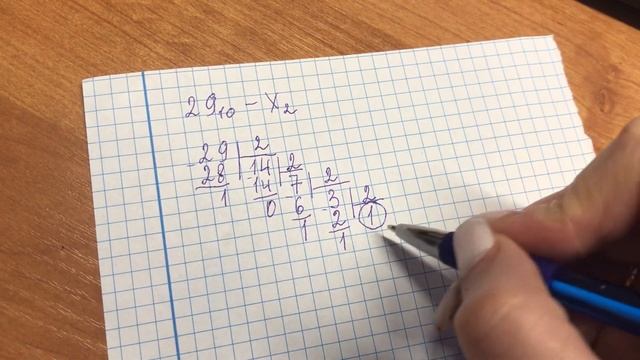 29₁₀ - X₂
-29 | 2
28 | -14 | 2
1 14 -7 | 2
0 6 -3 | 2
1 2 1
1